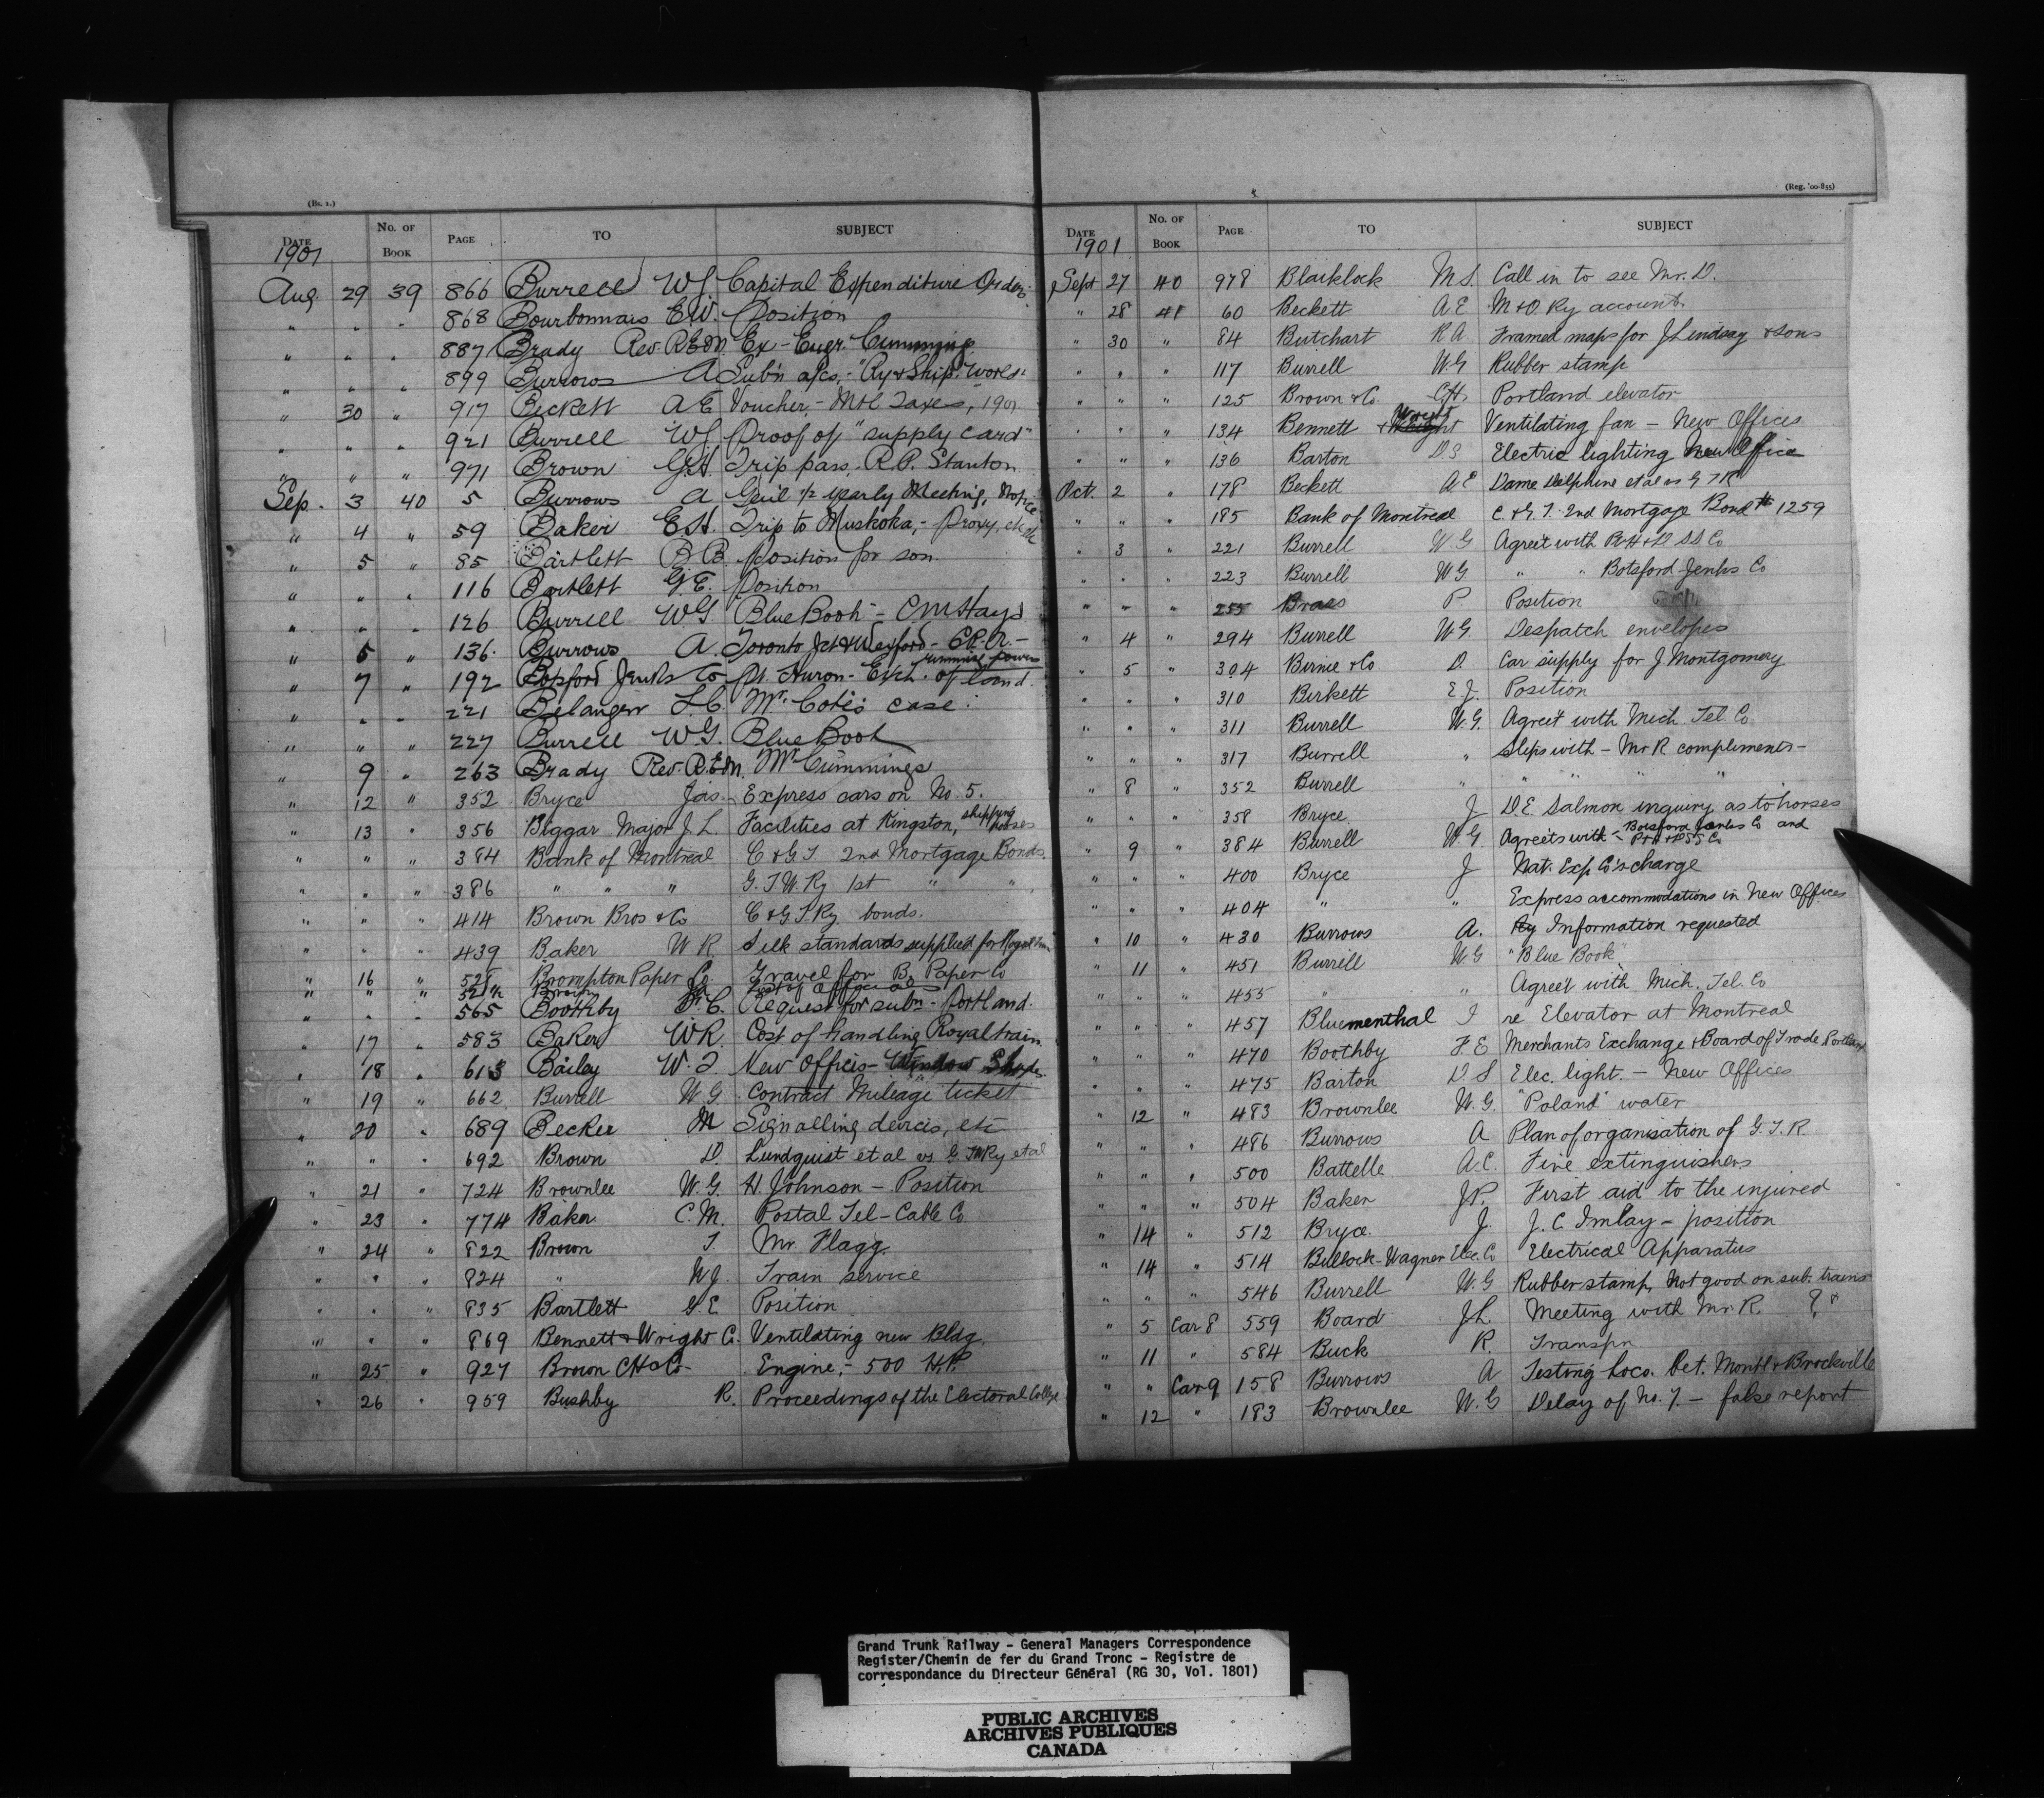 (Bs. 1.)
DATE No. OF BOOK PAGE TO SUBJECT
1901
Aug. 29 39 866 Burrell W G Capital Expenditure Orders
" " " 868 Bourbonnais E.W. Position
" " " 887 Brady Rev. R.E.M. Ex-Engr. Cumming
" " " 899 Burrows A Sub'n a/cs,- "Ry & Ship. World"
" 30 " 917 Beckett A E Voucher,- Mtl Taxes, 1901
" " " 921 Burrell W G Proof of "supply card"
" " " 971 Brown G.H. Trip pass. R.P. Stanton
Sep. 3 40 5 Burrows A Gen'l ½ yearly Meeting, Notice
" 4 " 59 Baker E.H. Trip to Muskoka,- Proxy,
" 5 " 85 Bartlett B.B. Position for son
" " " 116 Bartlett G.E. Position
" " " 126 Burrell W G "Blue Book" - C M Hays
" 5 " 136 Burrows A. Toronto Jct & Wexford - C.P.R. - running powers
" 7 " 192 Botsford Jenks Co. Pt. Huron - Exch. of land.
" " " 221 Belanger L.C. Mr. Cote's case.
" " " 227 Burrell W.G. Blue Book
" 9 " 263 Brady Rev. R.E.M. Mr Cummings
" 12 " 352 Bryce Jas. Express cars on No. 5.
" 13 " 356 Biggar Major J. L. Facilities at Kingston, shipping horses
" " " 384 Bank of Montreal C & G T 2nd Mortgage Bonds.
" " " 386 " " " G.T.W. Ry 1st " "
" " " 414 Brown Bros & Co C & G T Ry bonds.
" " " 439 Baker W R Silk standards supplied for Royal train
" 16 " 525 Brompton Paper Co. Gravel for B. Paper Co
" " " 521½ Brown
" " " 565 Boothby F. E. Request for subn - Portland.
" 17 " 583 Baker W R. Cost of handling Royal train
" 18 " 613 Bailey W. I. New Offices - Window Shades
" 19 " 662 Burrell W G. Contract Mileage ticket
" 20 " 689 Becker M Signalling devices, etc
" " " 692 Brown D. Lundquist et al vs G T W Ry et al
" 21 " 724 Brownlee W. G. H. Johnson - Position
" 23 " 774 Baker C. M. Postal Tel-Cable Co
" 24 " 822 Brown T. Mr. Flagg.
" " " 824 " W J. Train service
" " " 835 Bartlett G. E. Position
" " " 869 Bennett & Wright Co. Ventilating new Bldg.
" 25 " 927 Brown C H & Co- Engine,- 500 H.P.
" 26 " 959 Bushby R. Proceedings of the Electoral College
(Reg. '00-855)
DATE No. OF BOOK PAGE TO SUBJECT
1901
Sept 27 40 978 Blaiklock M S. Call in to see Mr. D.
" 28 41 60 Beckett A E M & O. Ry account.
" 30 " 84 Butchart R A Framed maps for J Lindsay & Sons
" " " 117 Burrell W. G Rubber stamp
" " " 125 Brown & Co. C H. Portland elevator
" " " 134 Bennett & Wright Ventilating fan - New Offices
" " " 136 Barton D S Electric lighting New Office
Oct. 2 " 178 Beckett A. E Dame Delphine et al vs G T R
" " " 185 Bank of Montreal C. & G. T. 2nd Mortgage Bond # 1259
" 3 " 221 Burrell W. G Agree't with P & H & D SS Co
" " " 223 Burrell W G " " Botsford-Jenks Co
" " " 255 Brass P Position
" 4 " 294 Burrell W. G. Despatch envelopes
" 5 " 304 Birnie & Co D. Car supply for J Montgomery
" " " 310 Birkett E J. Position
" " " 311 Burrell W. G. Agree't with Mich Tel. Co
" " " 317 Burrell " Slips with - Mr R compliments -
" 8 " 352 Burrell " " " "
" " " 358 Bryce J D. E. Salmon inquiry as to horses
" 9 " 384 Burrell W G Agree'ts with - Botsford Jenks Co and P & H & D SS Co
" " " 400 Bryce J Nat. Exp Co's charge
" " " 404 " " Express accommodations in New Offices
" 10 " 430 Burrows A. Ry Information requested
" 11 " 451 Burrell W G "Blue Book"
" " " 455 " " Agree't with Mich. Tel. Co
" " " 457 Bluementhal I re Elevator at Montreal
" " " 470 Boothby F. E Merchants Exchange & Board of Trade, Portland
" " " 475 Barton D. S Elec. light. - New Offices
" 12 " 483 Brownlee W. G. "Poland" water
" " " 486 Burrows A Plan of organisation of G. T. R
" " " 500 Battelle A. C. Fire extinguishers
" " " 504 Baker J P. First aid to the injured
" 14 " 512 Bryce. J. J. C. Imlay - position
" 14 " 514 Bullock-Wagner Elec. Co Electrical Apparatus
" " " 546 Burrell W. G Rubber stamp, Not good on sub. trains
" 5 Car 8 559 Board J L. Meeting with Mr. R. ? ?
" 11 " 584 Buck R. Transpn
" " Car 9 158 Burrows A Testing Loco. Bet. Mont'l & Brockville
" 12 " 183 Brownlee W. G Delay of No. 7. - false report
Grand Trunk Railway - General Managers Correspondence
Register/Chemin de fer du Grand Tronc - Registre de
correspondance du Directeur Général (RG 30, Vol. 1801)
PUBLIC ARCHIVES
ARCHIVES PUBLIQUES
CANADA